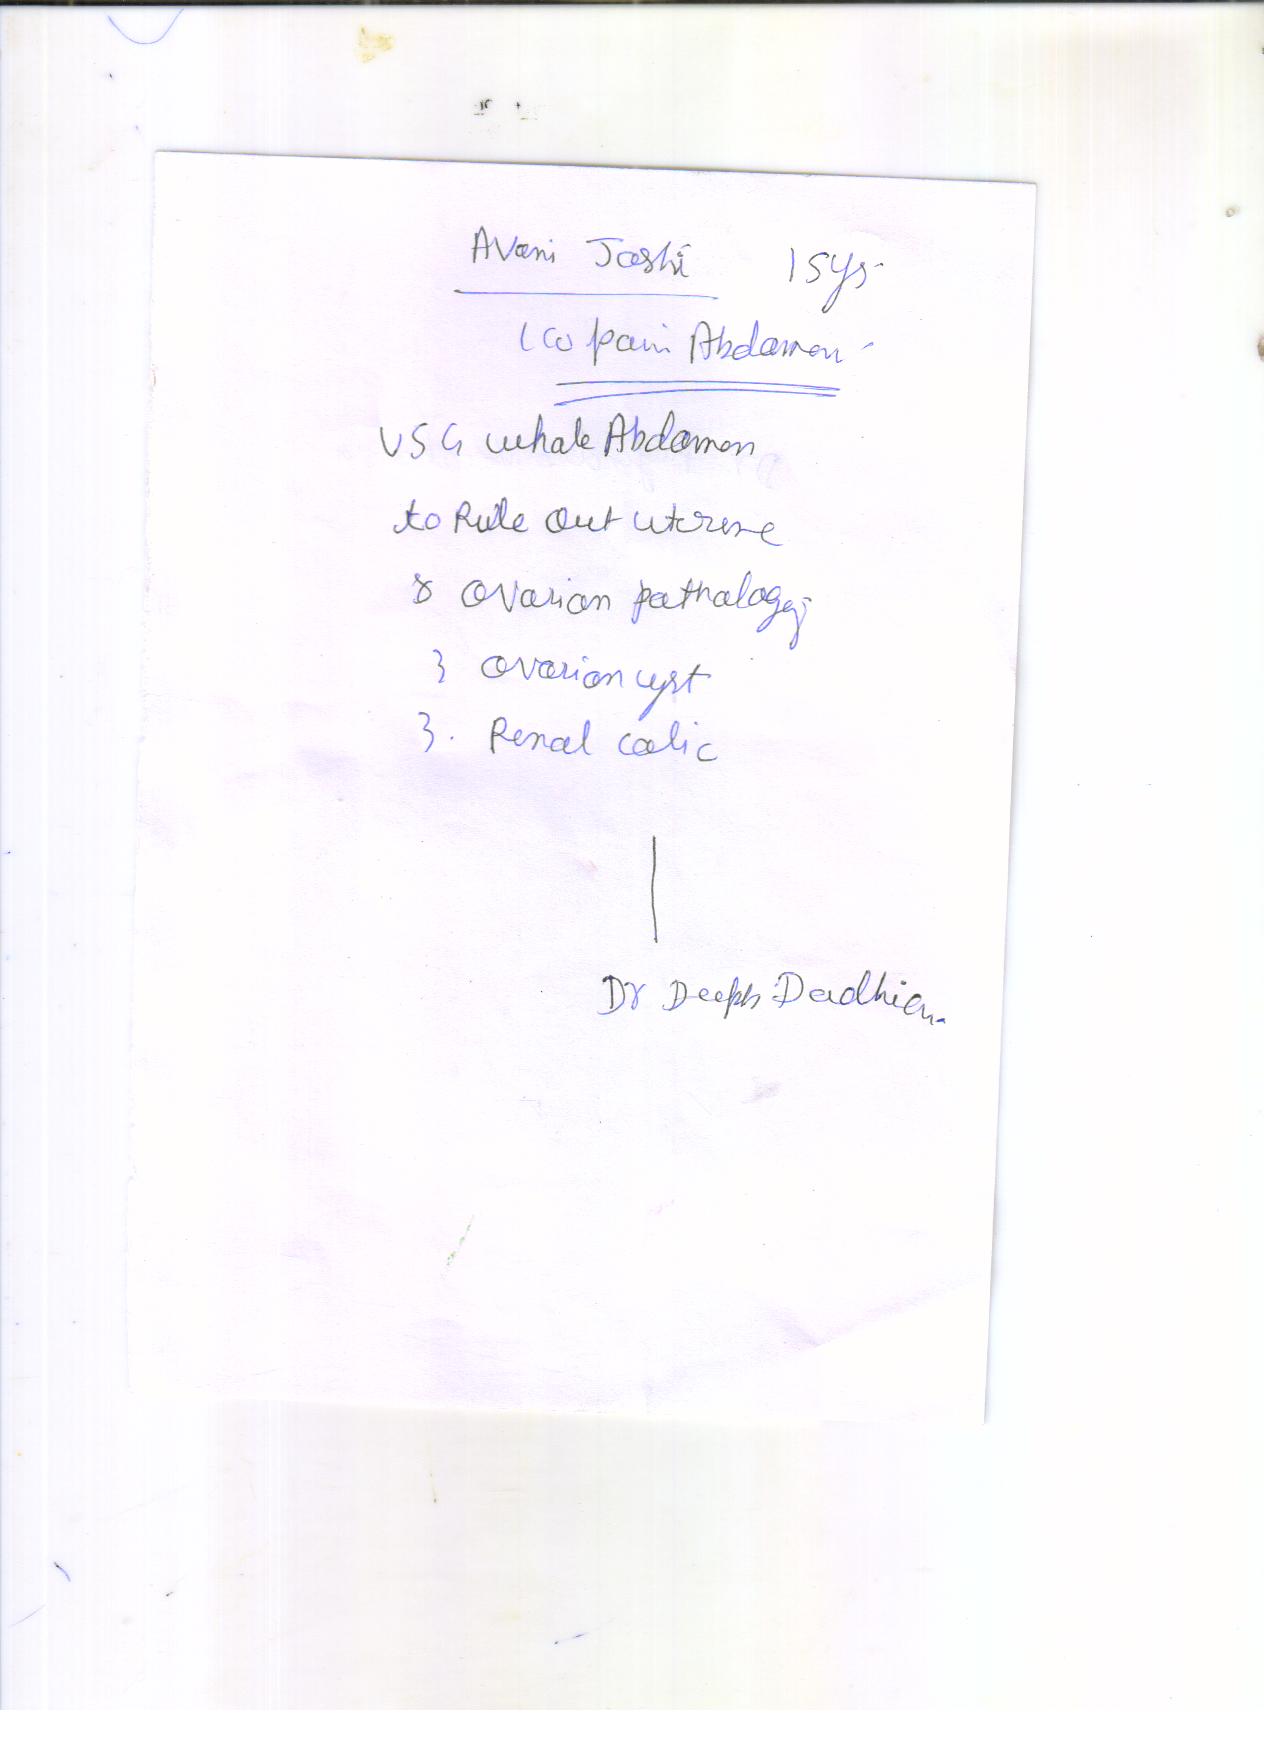 Avani Joshi 15ys
c/o pain Abdomen
USG whole Abdomen
to Rule out uterine
& ovarian pathology
? ovarian cyst
? Renal colic
Dr